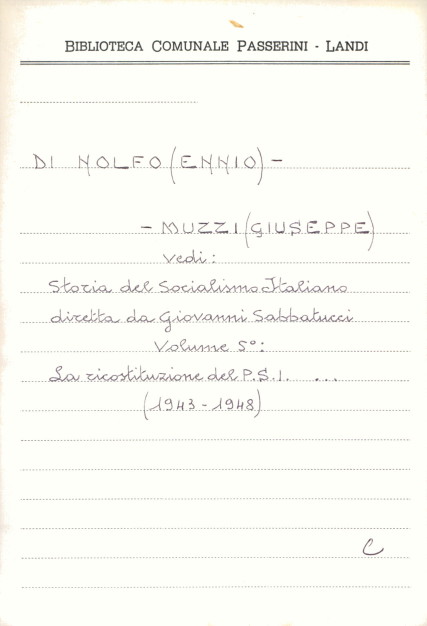 BIBLIOTECA COMUNALE PASSERINI - LANDI
DI NOLFO (ENNIO) -
- MUZZI (GIUSEPPE)
vedi:
Storia del Socialismo Italiano
diretta da Giovanni Sabbatucci
Volume 5°:
La ricostituzione del P.S.I. ...
(1943 - 1948)
C